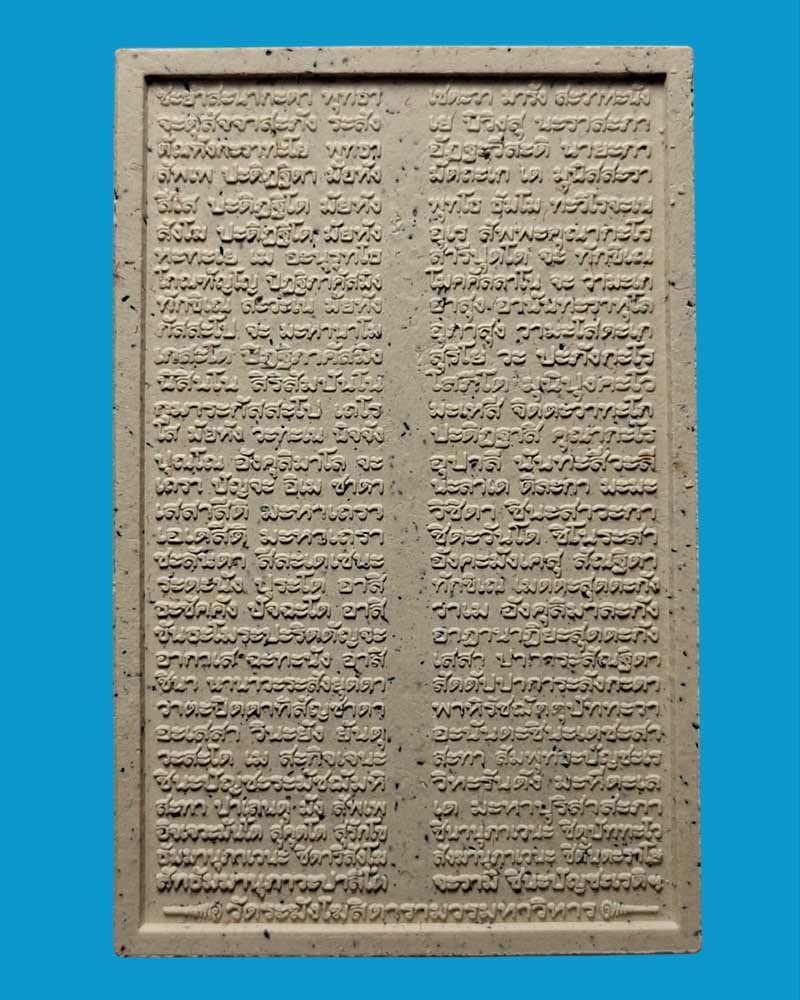 ชะยาสะนากะตา พุทธา เชตะวา มารัง สะวาหะนัง
จะตุสัจจาสะภัง ระสัง เย ปิวิงสุ นะราสะภา
ตัณหังกะราทะโย พุทธา อัฏฐะวีสะติ นายะกา
สัพเพ ปะติฏฐิตา มัยหัง มัตถะเก เต มุนิสสะรา
สีเส ปะติฏฐิโต มัยหัง พุทโธ ธัมโม ทะวิโลจะเน
สังโฆ ปะติฏฐิโต มัยหัง อุเร สัพพะคุณากะโร
หะทะเย เม อะนุรุทโธ สารีปุตโต จะ ทักขิเณ
โกณฑัญโญ ปิฏฐิภาคัสมิง โมคคัลลาโน จะ วามะเก
ทักขิเณ สะวะเน มัยหัง อาสุง อานันทะราหุโล
กัสสะโป จะ มะหานาโม อุภาสุง วามะโสตะเก
เกสะโต ปิฏฐิภาคัสมิง สุริโย วะ ปะภังกะโร
นิสินโน สิริสัมปันโน โสภิโต มุนิปุงคะโว
กุมาระกัสสะโป เถโร มะเหสี จิตตะวาทะโก
โส มัยหัง วะทะเน นิจจัง ปะติฏฐาสิ คุณากะโร
ปุณโณ อังคุลิมาโล จะ อุปาลี นันทะสีวะลี
เถรา ปัญจะ อิเม ชาตา นะลาเต ติละกา มะมะ
เสสาสีติ มะหาเถรา วิชิตา ชินะสาวะกา
เอเตสีติ มะหาเถรา ชิตะวันโต ชิโนระสา
ชะลันตา สีละเตเชนะ อังคะมังเคสุ สัณฐิตา
ระตะนัง ปุระโต อาสิ ทักขิเณ เมตตะสุตตะกัง
ธะชัคคัง ปัจฉะโต อาสิ วาเม อังคุลิมาละกัง
ขันธะโมระปะริตตัญจะ อาฏานาฏิยะสุตตะกัง
อากาเส ฉะทะนัง อาสิ เสสา ปาการะสัณฐิตา
ชินา นานาวะระสังยุตตา สัตตัปปาการะลังกะตา
วาตะปิตตาทิสัญชาตา พาหิรัชฌัตตุปัททะวา
อะเสสา วินะยัง ยันตุ อะนันตะชินะเตชะสา
วะสะโต เม สะกิจเจนะ สะทา สัมพุทธะปัญชะเร
ชินะปัญชะระมัชฌัมหิ วิหะรันตัง มะหีตะเล
สะทา ปาเลนตุ มัง สัพเพ เต มะหาปุริสาสะภา
อิจเจวะมันโต สุคุตโต สุรักโข ชินานุภาเวนะ ชิตุปัททะโว
ธัมมานุภาเวนะ ชิตาริสังโฆ สังฆานุภาเวนะ ชิตันตะราโย
สัทธัมมานุภาวะปาลิโต จะรามิ ชินะปัญชะเรติฯ
วัดระฆังโฆสิตารามวรมหาวิหาร